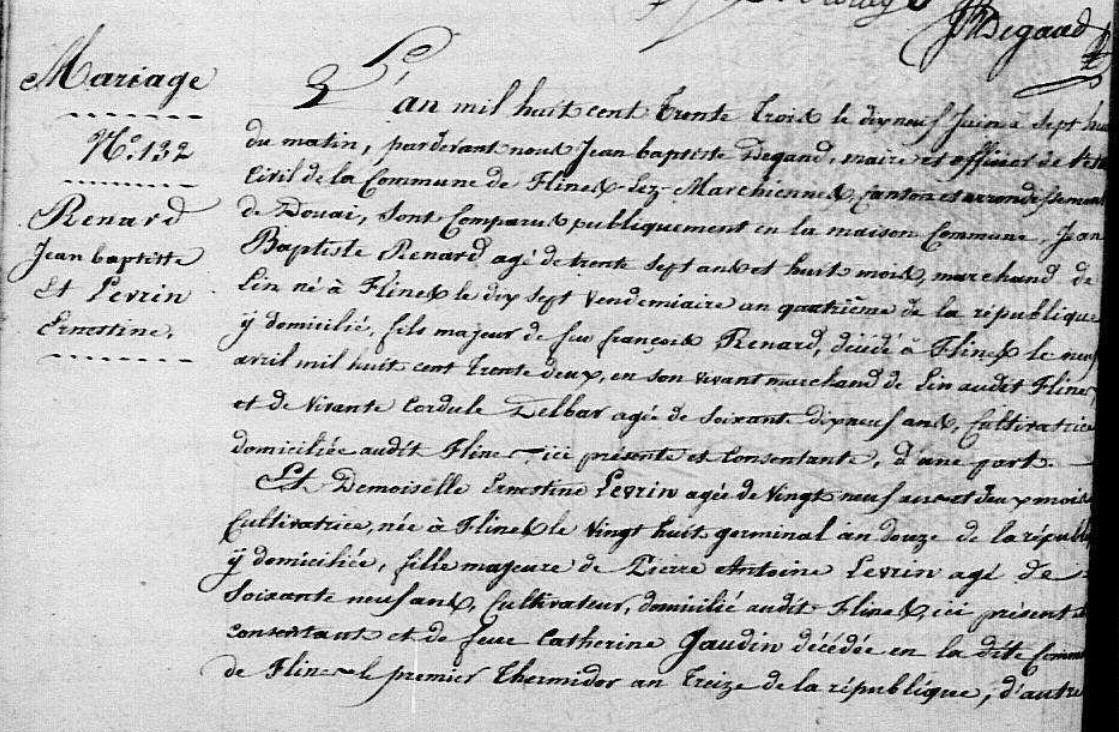 Degand
Mariage
N.° 132
Renard
Jean baptiste
Et Levrin
Ernestine.
L'an mil huit cent trente trois le dix neuf Juin à sept heu
du matin, pardevant nous Jean baptiste Degand, maire et officier de l'état
Civil de la Commune de Flines-Lez-Marchiennes, Canton et arrondissement
de Douai, sont Comparus publiquement en la maison Commune, Jean
Baptiste Renard agé de trente sept ans et huit mois, marchand de
Lin né à Flines le dix sept Vendemiaire an quatrième de la république
ÿ domicilié, fils majeur de feu françois Renard, décédé à Flines le neuf
avril mil huit cent trente deux, en son vivant marchand de Lin audit Flines,
et de Vivante Cordule Delbar agée de soixante dixneuf ans, Cultivatrice
domiciliée audit Flines ici présente et Consentante, d'une part.
Et Demoiselle Ernestine Levrin agée de Vingt neuf ans et deux mois
Cultivatrice, née à Flines le Vingt huit germinal an douze de la républi
ÿ domiciliée, fille majeure de Pierre Antoine Levrin agé de
Soixante neuf ans, Cultivateur, domicilié audit Flines, ici présent et
Consentant et de feue Catherine Gaudin décédée en la dite Comm
de Flines le premier Thermidor an treize de la république, d'autre